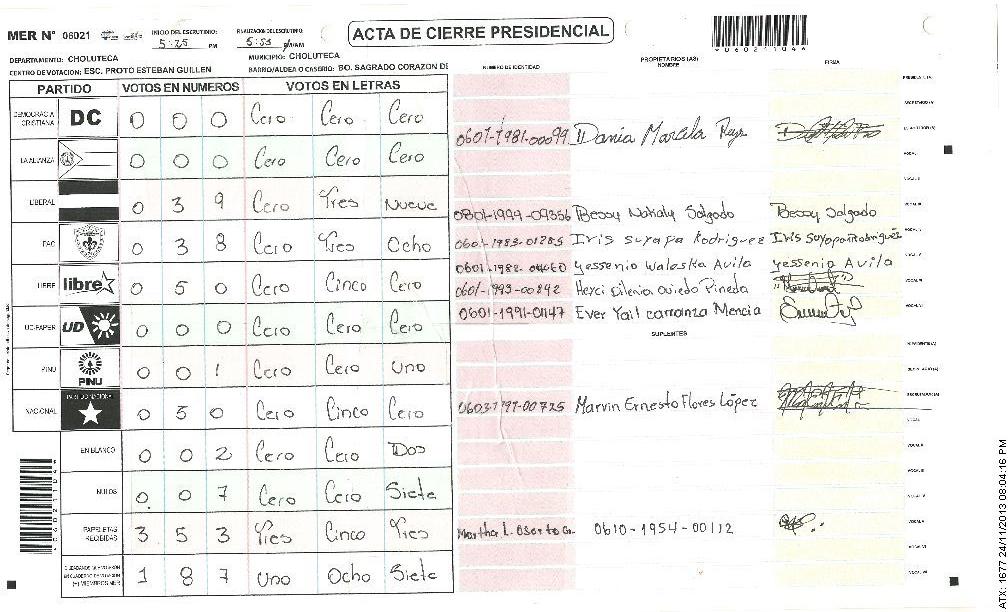 MER N° 06021
INICIO DEL ESCRUTINIO: 5:25 PM
FINALIZACION ESCRUTINIO: 5:55 PM/AM
ACTA DE CIERRE PRESIDENCIAL
*060211046*
DEPARTAMENTO: CHOLUTECA
MUNICIPIO: CHOLUTECA
CENTRO DE VOTACION: ESC. PROTO ESTEBAN GUILLEN
BARRIO/ALDEA O CASERIO: BO. SAGRADO CORAZON DE
PARTIDO VOTOS EN NUMEROS VOTOS EN LETRAS
NUMERO DE IDENTIDAD PROPIETARIOS (AS) NOMBRE FIRMA
DEMOCRACIA CRISTIANA DC 0 0 0 Cero Cero Cero
LA ALIANZA 0 0 0 Cero Cero Cero
LIBERAL 0 3 9 Cero Tres Nueve
PAC 0 3 8 Cero Tres Ocho
LIBRE libre 0 5 0 Cero Cinco Cero
UD-FAPER UD 0 0 0 Cero Cero Cero
PINU PINU 0 0 1 Cero Cero uno
NACIONAL PARTIDO NACIONAL 0 5 0 Cero Cinco Cero
EN BLANCO 0 0 2 Cero Cero Dos
NULOS 0 0 7 Cero Cero Siete
PAPELETAS RECIBIDAS 3 5 3 Tres Cinco Tres
CIUDADANOS QUE VOTARON EN CUADERNO DE VOTACION (+) MIEMBROS MER 1 8 7 uno Ocho Siete
0601-1981-00099 Dania Marcela Ruz
0801-1999-09356 Bessy Nohaly Salgado Bessy Salgado
0601-1983-01285 Iris Suyapa Rodriguez Iris Suyapa Rodriguez
0601-1982- Yessenia Waleska Avila Yessenia Avila
0601-1993-00842 Heyci Dilenia Oviedo Pineda
0601-1991-01147 Ever Yail carranza Mencia
SUPLENTES
0603-1991-00725 Marvin Ernesto Flores López
Martha L. Osorto G. 0610-1954-00112
PRESIDENTE (A)
SECRETARIO (A)
ESCRUTADOR (A)
VOCAL I
VOCAL II
ATX: 1677 24/11/2013 08:04:16 PM